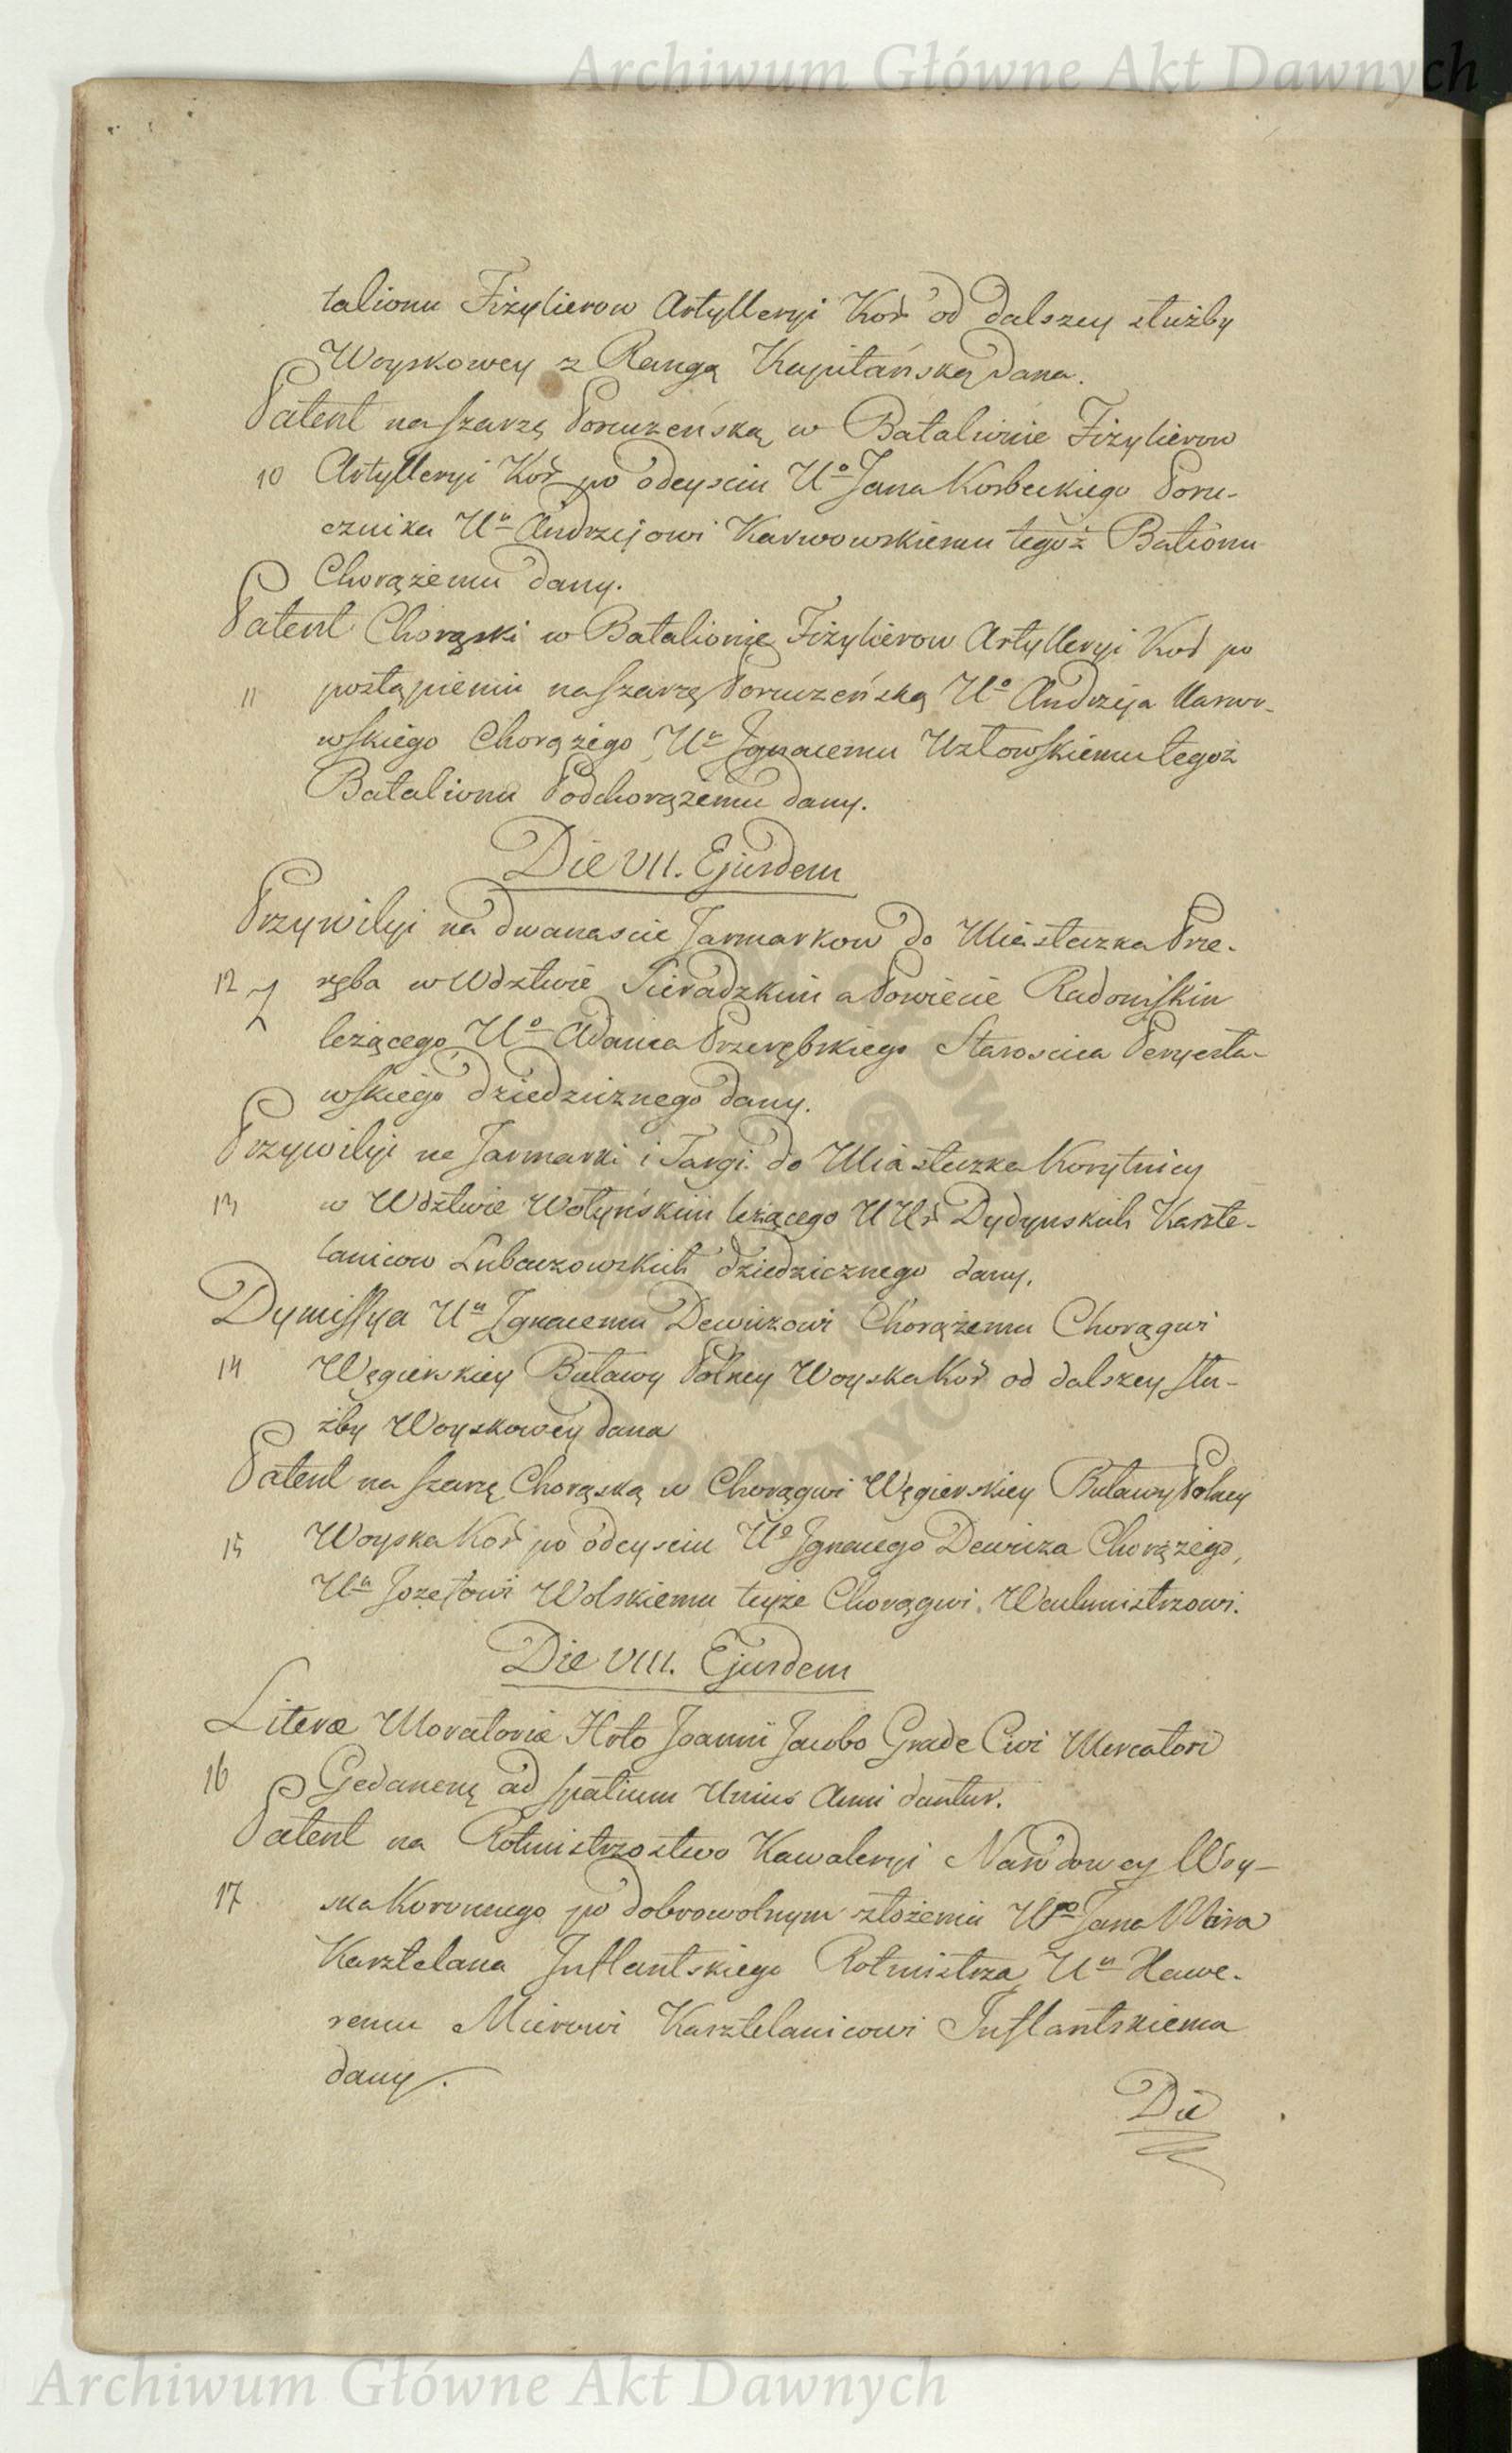 Archiwum Główne Akt Dawnych
talionu Fizylierow Artylleryi Kor od dalszey służby
Woyskowey z Rangą Kapitańską dana.
Patent na szarzę Poruczeńską w Batalionie Fizylierow
10 Artylleryi Kor po odeysciu Uo Jana Korbeckiego Poru-
cznika Un Andrzejowi Karwowskiemu tegoż Bationu
Chorążemu dany.
Patent Chorąski w Batalionie Fizylierow Artylleryi Kor po
11 postąpieniu na szarzę Poruczeńską Uo Andrzeja Karwo-
wskiego Chorążego, Un Ignacemu Uzłowskiemu tegoż
Batalionu Podchorążemu dany.
Die VII. Ejusdem
Przywiley na dwanascie Jarmarkow do Miasteczka Prze-
12 ręba w Wdztwie Sieradzkim a Powiecie Radomskim
leżącego Uo Adama Przerębskiego Starościca
wskiego dziedzicznego dany.
Przywiley na Jarmarki i Targi do Miasteczka Korytnicy
13 w Wdztwie Wołyńskim leżącego UUr Dydynskich Kaszte-
lanicow Lubaczowskich dziedzicznego dany.
Dymissya Un Ignacemu Dewiczowi Chorążemu Chorągwi
14 Węgierskiey Buławy Polney Woyska Kor od dalszey słu-
żby Woyskowey dana
Patent na szarzę Chorąską w Chorągwi Węgierskiey Buławy Polney
15 Woyska Kor po odeysciu Uo Ignacego Dewicza Chorążego,
Un Jozefowi Wolskiemu teyże Chorągwi Wachmistrzowi.
Die VIII. Ejusdem
Literæ Moratoriæ Hrto Joanni Jacobo Grade Civi Mercatori
16 Gedanenę ad spatium Unius Anni dantur.
Patent na Rotmistrzostwo Kawaleryi Narodowey Woy-
17 ska Koronnego po dobrowolnym złożeniu Wo Jana Miera
Kasztelana Inflantskiego Rotmistrza, Un Xawe-
remu Mierowi Kasztelanicowi Inflantskiemu
dany.
Die
Archiwum Główne Akt Dawnych